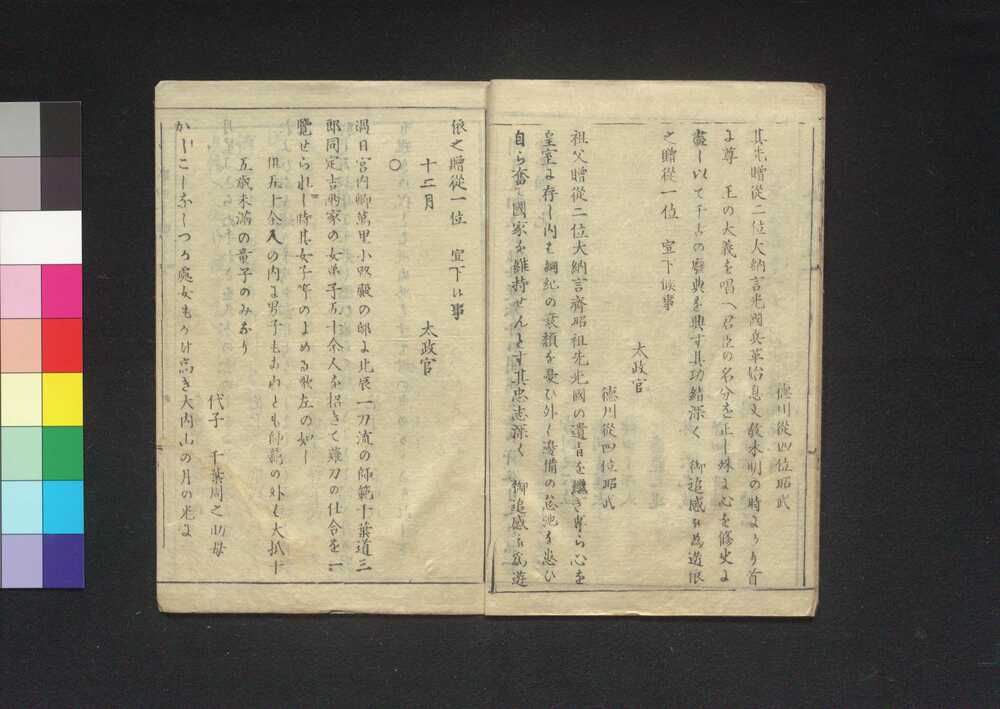 徳川從四位昭武
其先贈從二位大納言光國兵革始息文教未明の時より首
に尊　王の大義を唱へ君臣の名分を正し殊に心を修史に
盡し以て千古の廢典を興す其功績深く　御追感被為遊依
之贈從一位　宣下候事
太政官
徳川從四位昭武
祖父贈從二位大納言齊昭祖先光國の遺旨を繼ぎ専ら心を
皇室に存し内は綱紀の衰頽を憂ひ外は邊備の怠弛を患ひ
自ら奮て國家を維持せんとす其忠志深く　御追感被為遊
依之贈從一位　宣下候事
十二月　　太政官
○
過日宮内卿萬里小路殿の邸に北辰一刀流の師範千葉道三
郎同定吉両家の女弟子五十余人を招きて薙刀の仕合を一
覽せられし時其女子等のよめる歌左の如し
但五十余人の内に男子もあれとも師範の外は大抵十
五歳未満の童子のみなり
代子　千葉周之助母
かしこしなしつか處女もかけ高き大内山の月の光に